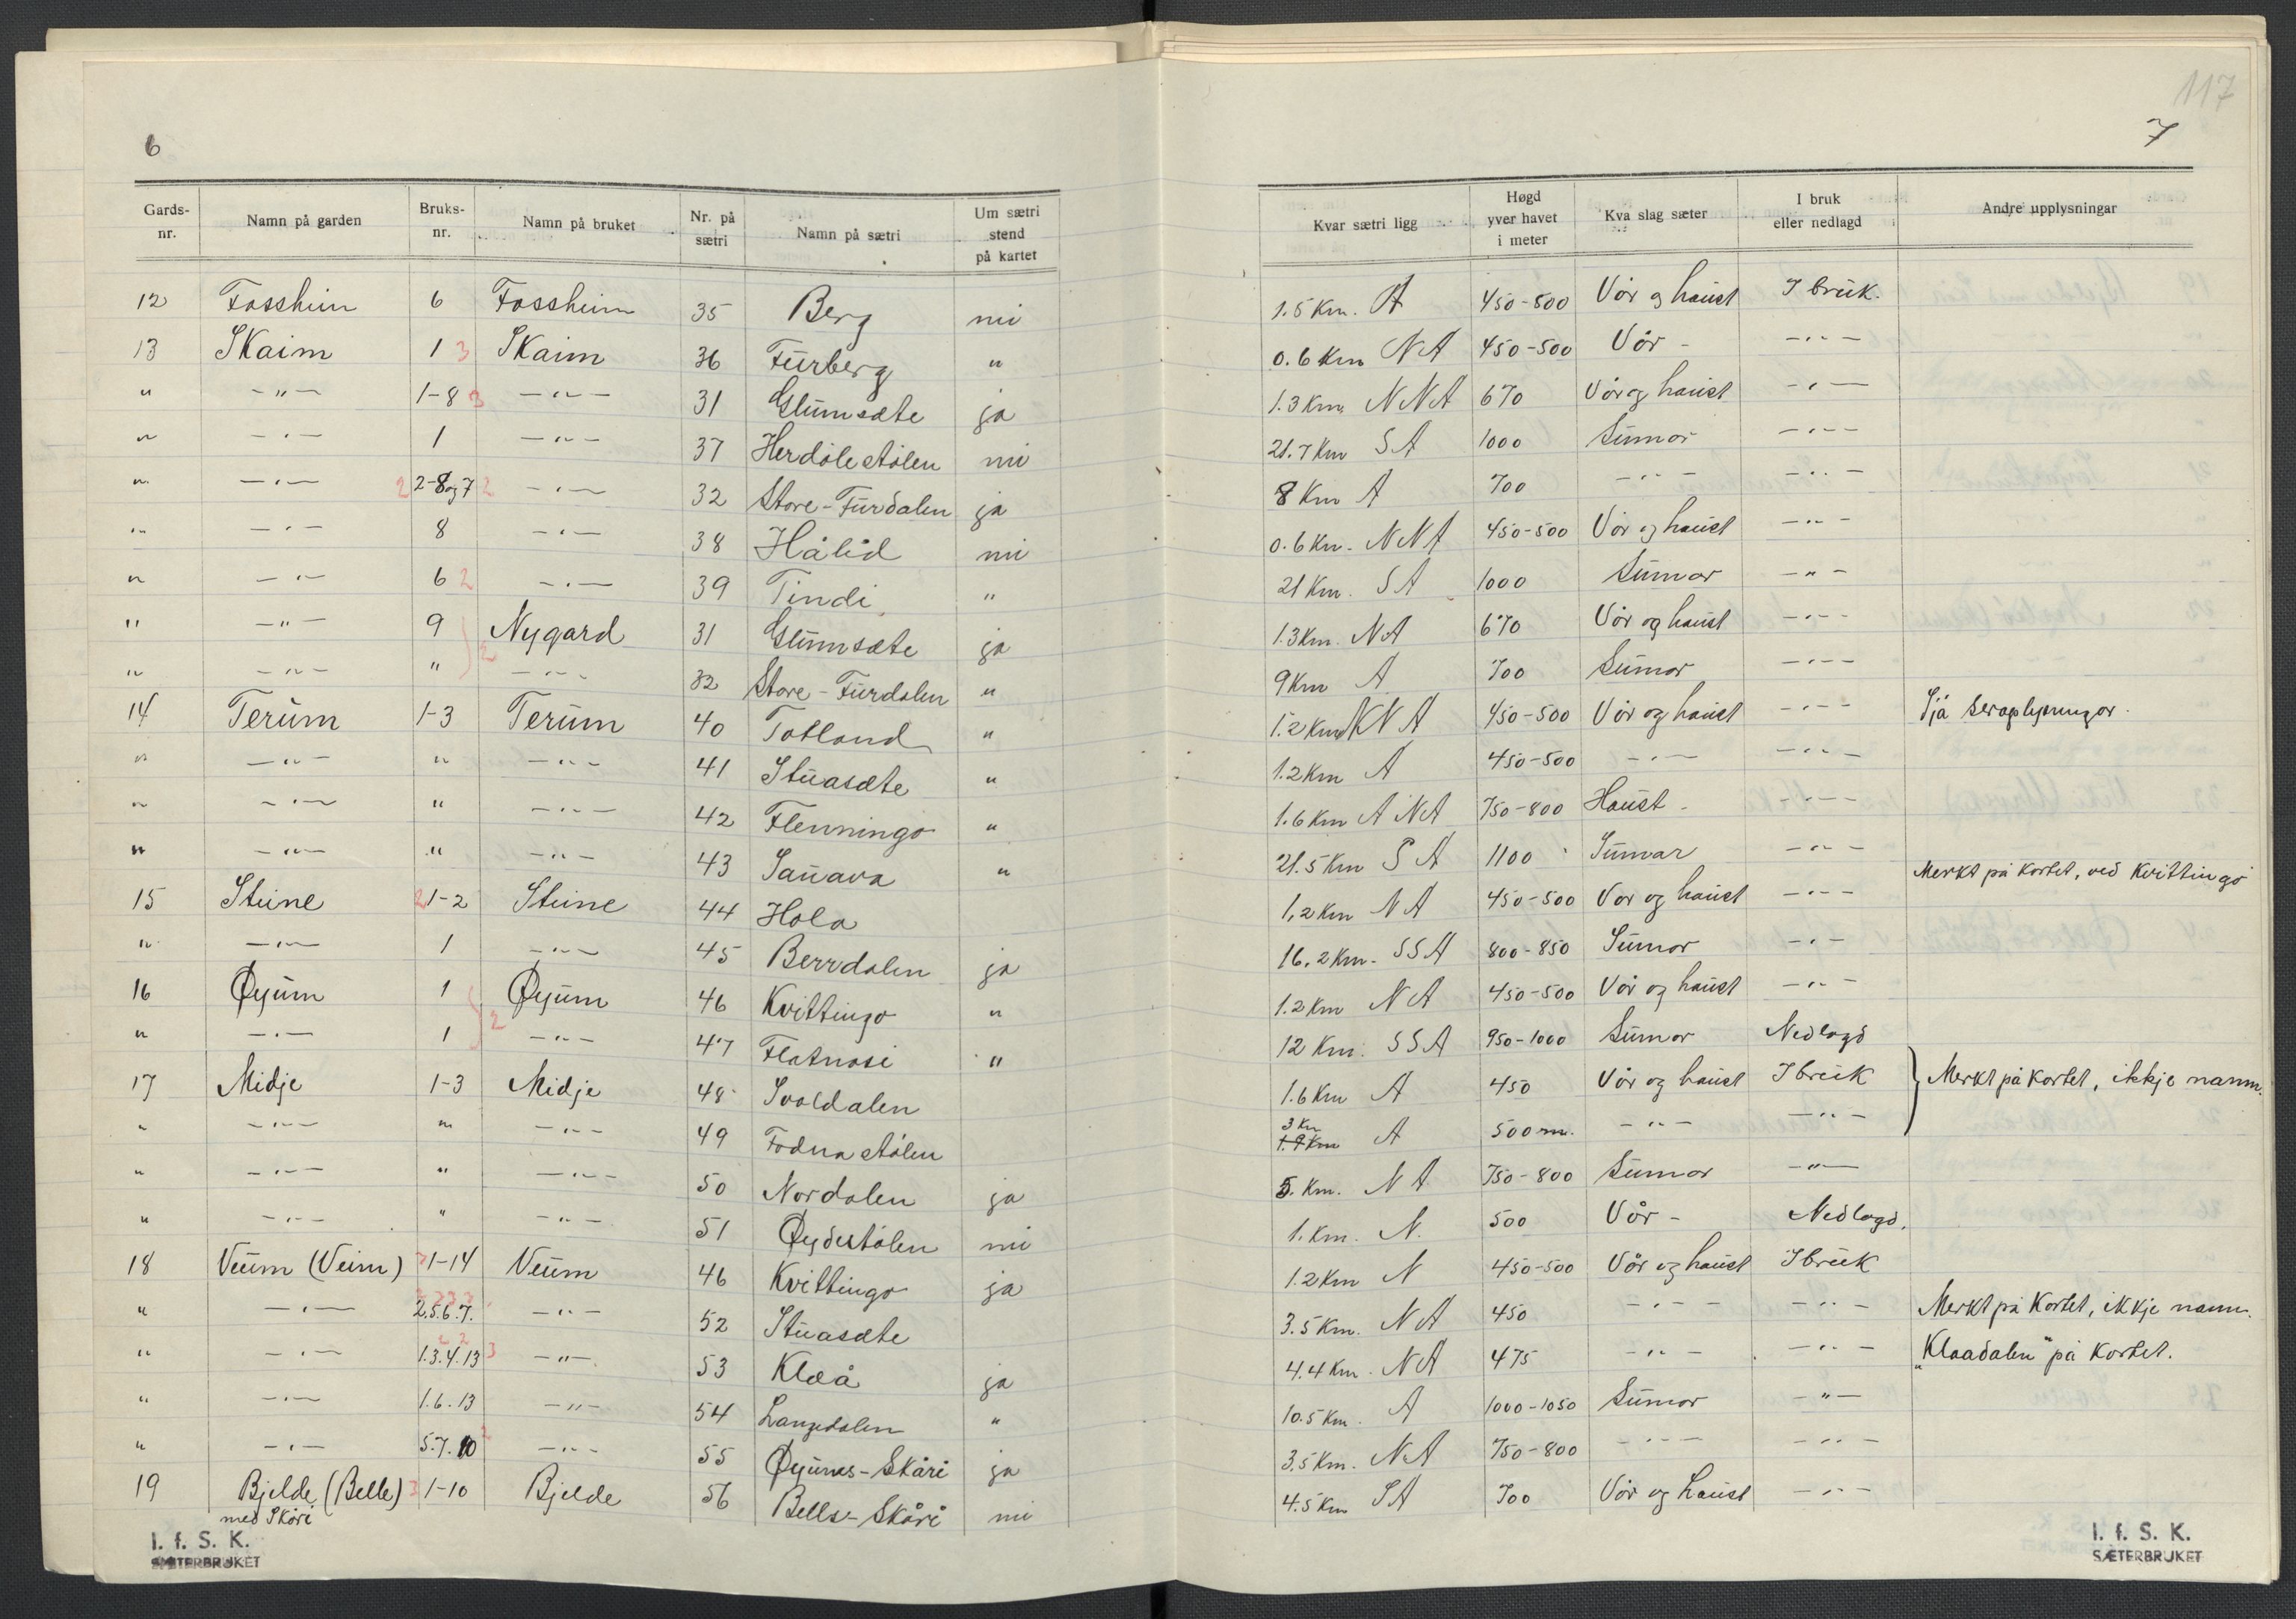 117
6
7
Gards-nr. Namn på garden Bruks-nr. Namn på bruket Nr. på sætri Namn på sætri Um sætri stend på kartet Kvar sætri ligg Høgd yver havet i meter Kva slag sæter I bruk eller nedlagd Andre upplysningar
12 Fossheim 6 Fossheim 35 Berg nei 1.5 Km. A 450-500 Vår og haust I bruk.
13 Skaim 1 3 Skaim 36 Furberg " 0.6 Km NA 450-500 Vår - -"-
" -"- 1-8 3 -"- 31 Glumsæte ja 1.3 Km NNA 670 Vår og haust -"-
" -"- 1 -"- 37 Herdølestølen nei 21.7 Km SA 1000 Sumar -"-
" -"- 2 2-8og7 2 -"- 32 Store-Furdalen ja 8 Km A 700 -"- -"-
" -"- 8 -"- 38 Hålid nei 0.6 Km. NNA 450-500 Vår og haust -"-
" -"- 6 2 -"- 39 Tindi " 21 Km. SA 1000 Sumar -"-
" -"- 9 Nygard 31 Glumsæte ja 1.3 Km. NA 670 Vår og haust -"-
" -"- " 2 -"- 32 Store-Furdalen " 9 Km A 700 Sumar -"-
14 Terum 1-3 Terum 40 Totland " 1.2 Km NA 450-500 Vår og haust -"- Sjå
" -"- " -"- 41 Stuasæte " 1.2 Km A 450-500 -"- -"-
" -"- " -"- 42 Flenningo " 1.6 Km ANA 750-800 Haust - -"-
" -"- " -"- 43 Sauava " 21.5 Km SA 1100 Sumar -"-
15 Steine 2 1-2 Steine 44 Hola 1,2 Km NA 450-500 Vår og haust -"- Merkt på kartet, ved Kvittingo
" -"- 1 -"- 45 Berrdalen ja 16.2 Km. SSA 800-850 Sumar -"-
16 Øyum 1 Øyum 46 Kvittingo " 1.2 Km NA 450-500 Vår og haust -"-
" -"- 1 2 -"- 47 Flatnasi " 12 Km. SSA 950-1000 Sumar Nedlagd
17 Midje 1-3 Midje 48 Svoldalen 1.6 Km A 450 Vår og haust I bruk } Merkt på kartet, ikkje namn.
" -"- " -"- 49 Fodnastølen 3 Km A 500 m. -"- -"-
" -"- " -"- 50 Nordalen ja 5. Km. NA 750-800 Sumar -"-
" -"- " -"- 51 Øydestølen nei 1. Km. N. 500 Vår - Nedlagd.
18 Veum (Veim) 3 1-14 Veum 46 Kvittingo ja 1.2 Km N 450-500 Vår og haust I bruk
" -"- 2.5.6.7. -"- 52 Stuasæte 3.5 Km. NA 450 -"- -"- Merkt på Kartet, ikkje namn.
" -"- 1.3.4.13 3 -"- 53 Klæå ja 4.4 Km. NA 475 -"- -"- "Klaadalen" på Kartet.
" -"- 1.6.13 -"- 54 Langedalen " 10.5 Km. A 1000-1050 Sumar -"-
" -"- 5.7.10 2 -"- 55 Øyums-Skåri ja 3.5 Km. NA 750-800 -"- -"-
19 Bjelde (Belle) 3 1-10 Bjelde 56 Bells-Skåri nei 4.5 Km SA 700 Vår og haust -"-
med Skåri
I. f. S. K.
SÆTERBRUKET
I. f. S. K.
SÆTERBRUKET